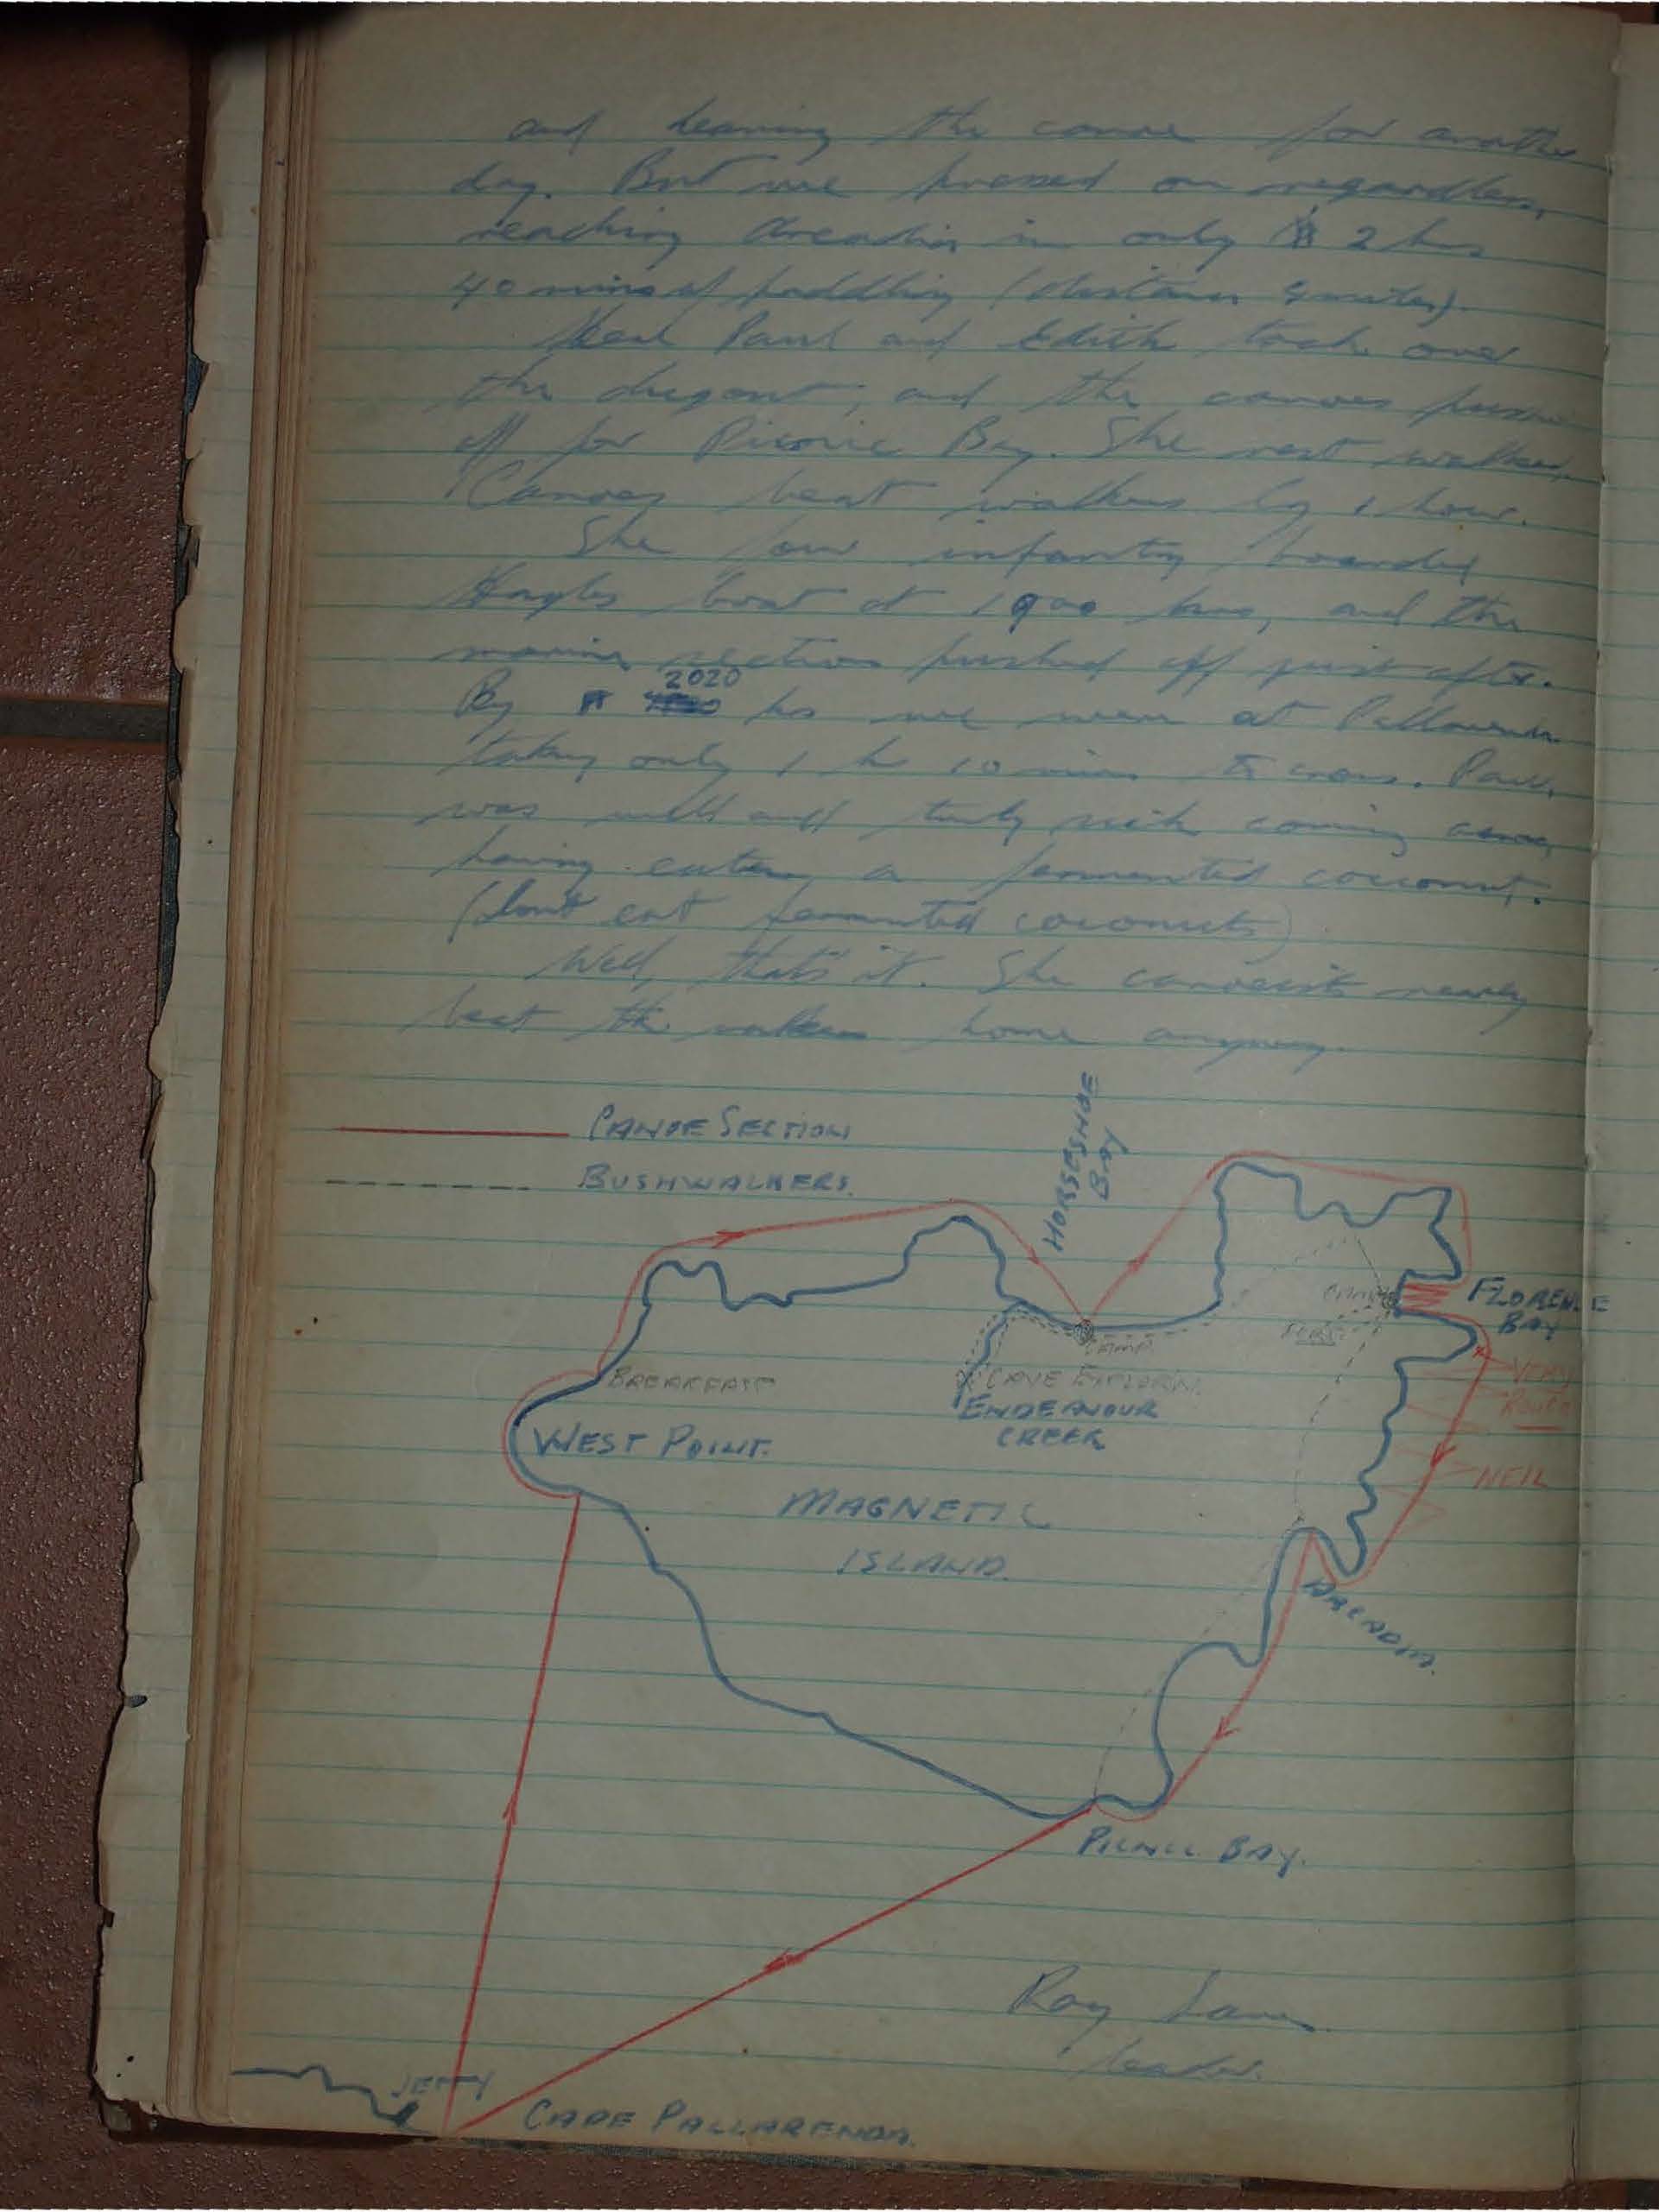 and leaving the canoe for another
day. But we pressed on regardless,
reaching Arcadia in only 2 hrs
40 mins of paddling (distance 4 miles).
Here Paul and Edith took over
the and the canoes
off for Picnic Bay. The rest walked.
Canoes beat walkers by 1 hour.
The four infantry boarded
Hayles boat at 1900 hrs, and the
marine section pushed off just after.
By 2020 hrs we were at Pallarenda
taking only 1 hr 10 mins to cross. Paul
was well and truly sick coming
having eaten a fermented coconut.
(Dont eat fermented coconuts)
Well, that's it. The canoeists nearly
beat the walkers home anyway.
CANOE SECTION
BUSHWALKERS.
HORSESHOE
BAY
FLORENCE
BAY
CAMP
CAMP
VERY
ROUGH
BREAKFAST
CAVE EXPLORN.
ENDEAVOUR
CREEK
WEST POINT.
NEIL
MAGNETIC
ISLAND.
ARCADIA.
PICNIC BAY.
Ray
Leader.
JETTY
CAPE PALLARENDA.